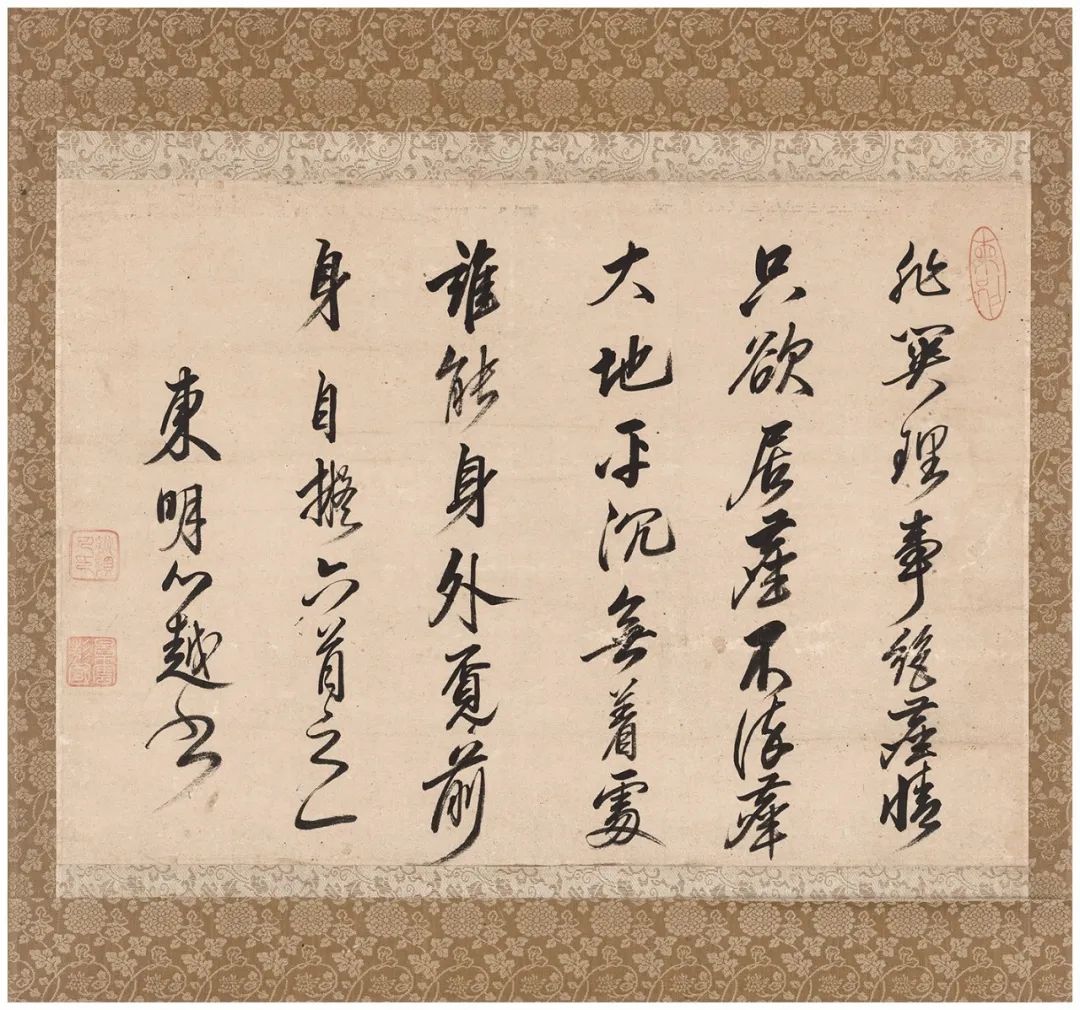 非巽理事絶塵情
只欲居塵不染塵
大地平沉無着處
誰能身外覓前
身 自擬六首之一
東明心越書